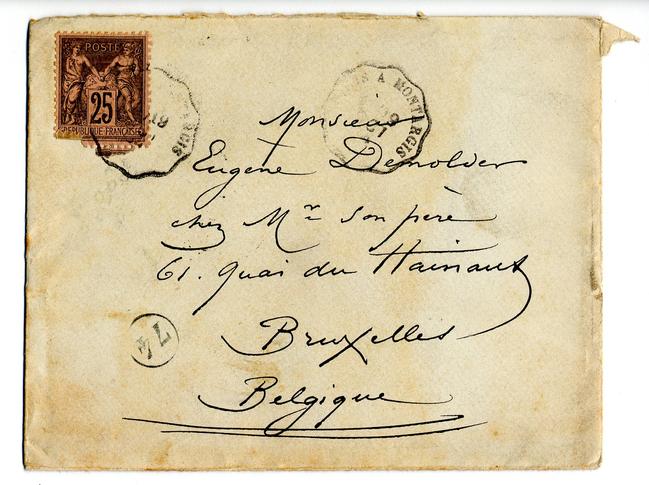 POSTE
25
RÉPUBLIQUE FRANÇAISE
A MONTARGIS
Monsieur
Eugène Demolder
chez Mr son père
61. Quai du Hainaut
Bruxelles
Belgique
74